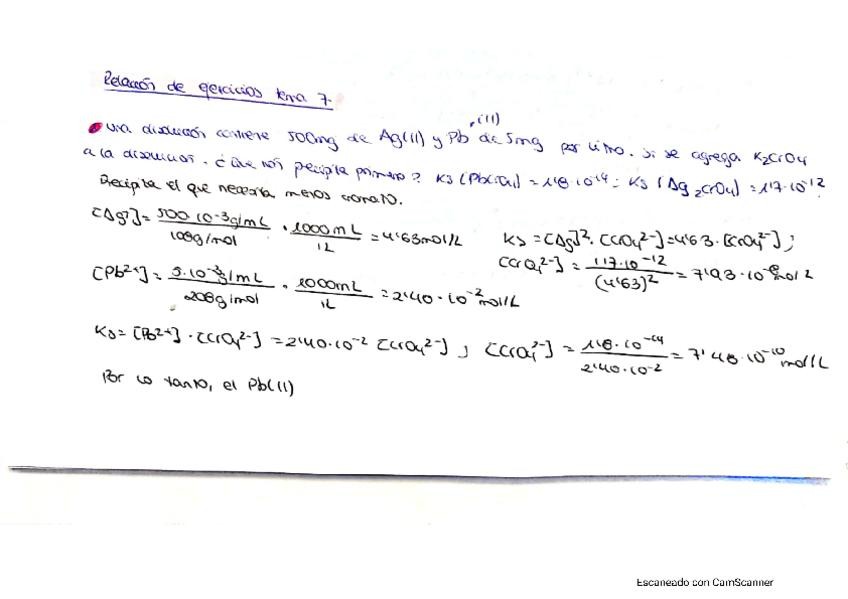 Relación de ejercicios tema 7.
Una disolución contiene 500mg de Ag(II) y Pb (II) de 5mg por litro. Si se agrega K2CrO4
a la disolución. ¿Que ión precipita primero? Ks (PbCrO4) = 1'8·10^-14 ; Ks (Ag2CrO4) = 1'17·10^-12
Precipita el que necesita menos cromato.
[Ag+] = 500·10^-3 g/mL / 108g/mol · 1000mL / 1L = 4'63mol/L
Ks = [Ag]^2 · [CrO4^2-] = 4'63 · [CrO4^2-] ;
[CrO4^2-] = 1'17·10^-12 / (4'63)^2 = 7'93·10^-8 mol L
[Pb^2+] = 5·10^-3 g/mL / 208g/mol · 1000mL / 1L = 2'40·10^-2 mol/L
Ks = [Pb^2+] · [CrO4^2-] = 2'40·10^-2 [CrO4^2-] ; [CrO4^2-] = 1'8·10^-14 / 2'40·10^-2 = 7'48·10^-10 mol/L
Por lo tanto, el Pb(II)
Escaneado con CamScanner